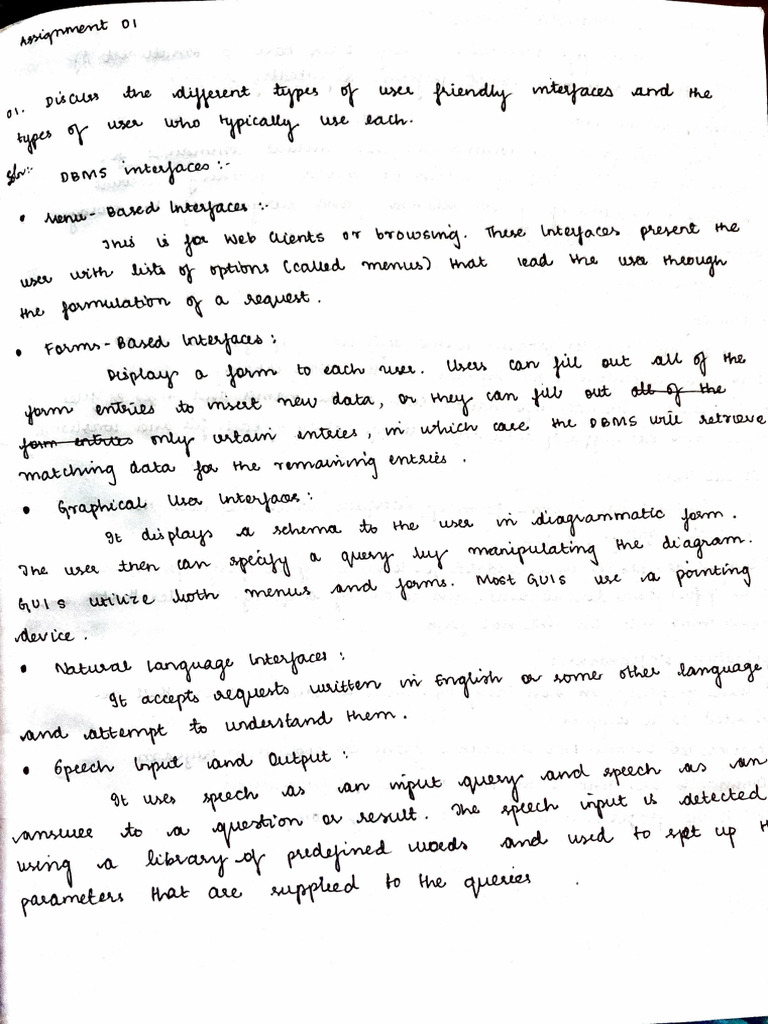 Assignment 01
01. Discuss the different types of user friendly interfaces and the
types of user who typically use each.
Soln:- DBMS interfaces :-
• Menu-Based Interfaces :-
This is for Web Clients or browsing. These Interfaces present the
user with lists of options (called menus) that lead the user through
the formulation of a request.
• Forms-Based Interfaces :
Display a form to each user. Users can fill out all of the
form entries to insert new data, or they can fill out all of the
form entries only certain entries, in which case the DBMS will retrieve
matching data for the remaining entries.
• Graphical User Interfaces :
It displays a schema to the user in diagrammatic form.
The user then can specify a query by manipulating the diagram.
GUIs utilize both menus and forms. Most GUIs use a pointing
device.
• Natural Language Interfaces :
It accepts requests written in English or some other language
and attempt to understand them.
• Speech Input and Output :
It uses speech as an input query and speech as an
answer to a question or result. The speech input is detected
using a library of predefined words and used to set up
parameters that are supplied to the queries.